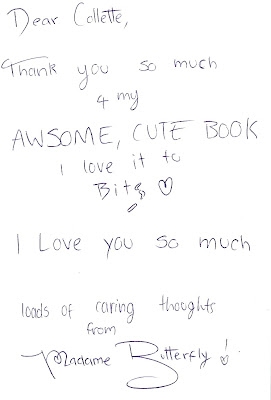 Dear Collette,
Thank you so much
4 my
AWSOME, CUTE BOOK
I love it to
Bits ♡
I Love you so much
loads of caring thoughts
from
Madame Butterfly!